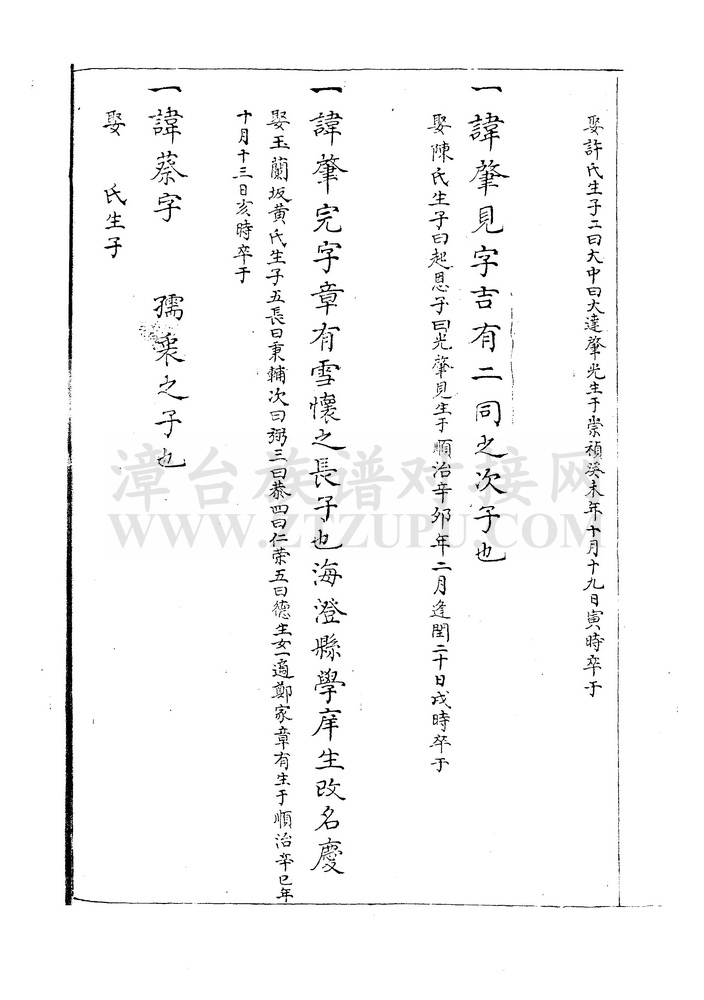 娶許氏生子二曰大中曰大達肇光生于崇禎癸未年十月十九日寅時卒于
一諱肇見字吉有二同之次子也
娶陳氏生子曰起恩子曰光肇見生于順治辛卯年二月逢閏二十日戌時卒于
一諱肇完字章有雪懷之長子也海澄縣學庠生改名慶
娶玉蘭坂黃氏生子五長曰秉輔次曰弼三曰恭四曰仁荣五曰德生女一適鄭家章有生于順治辛巳年
十月十三日亥時卒于
一諱蔡字 孺采之子也
娶 氏生子
漳台族谱对接网
WWW.ZTZUPU.COM